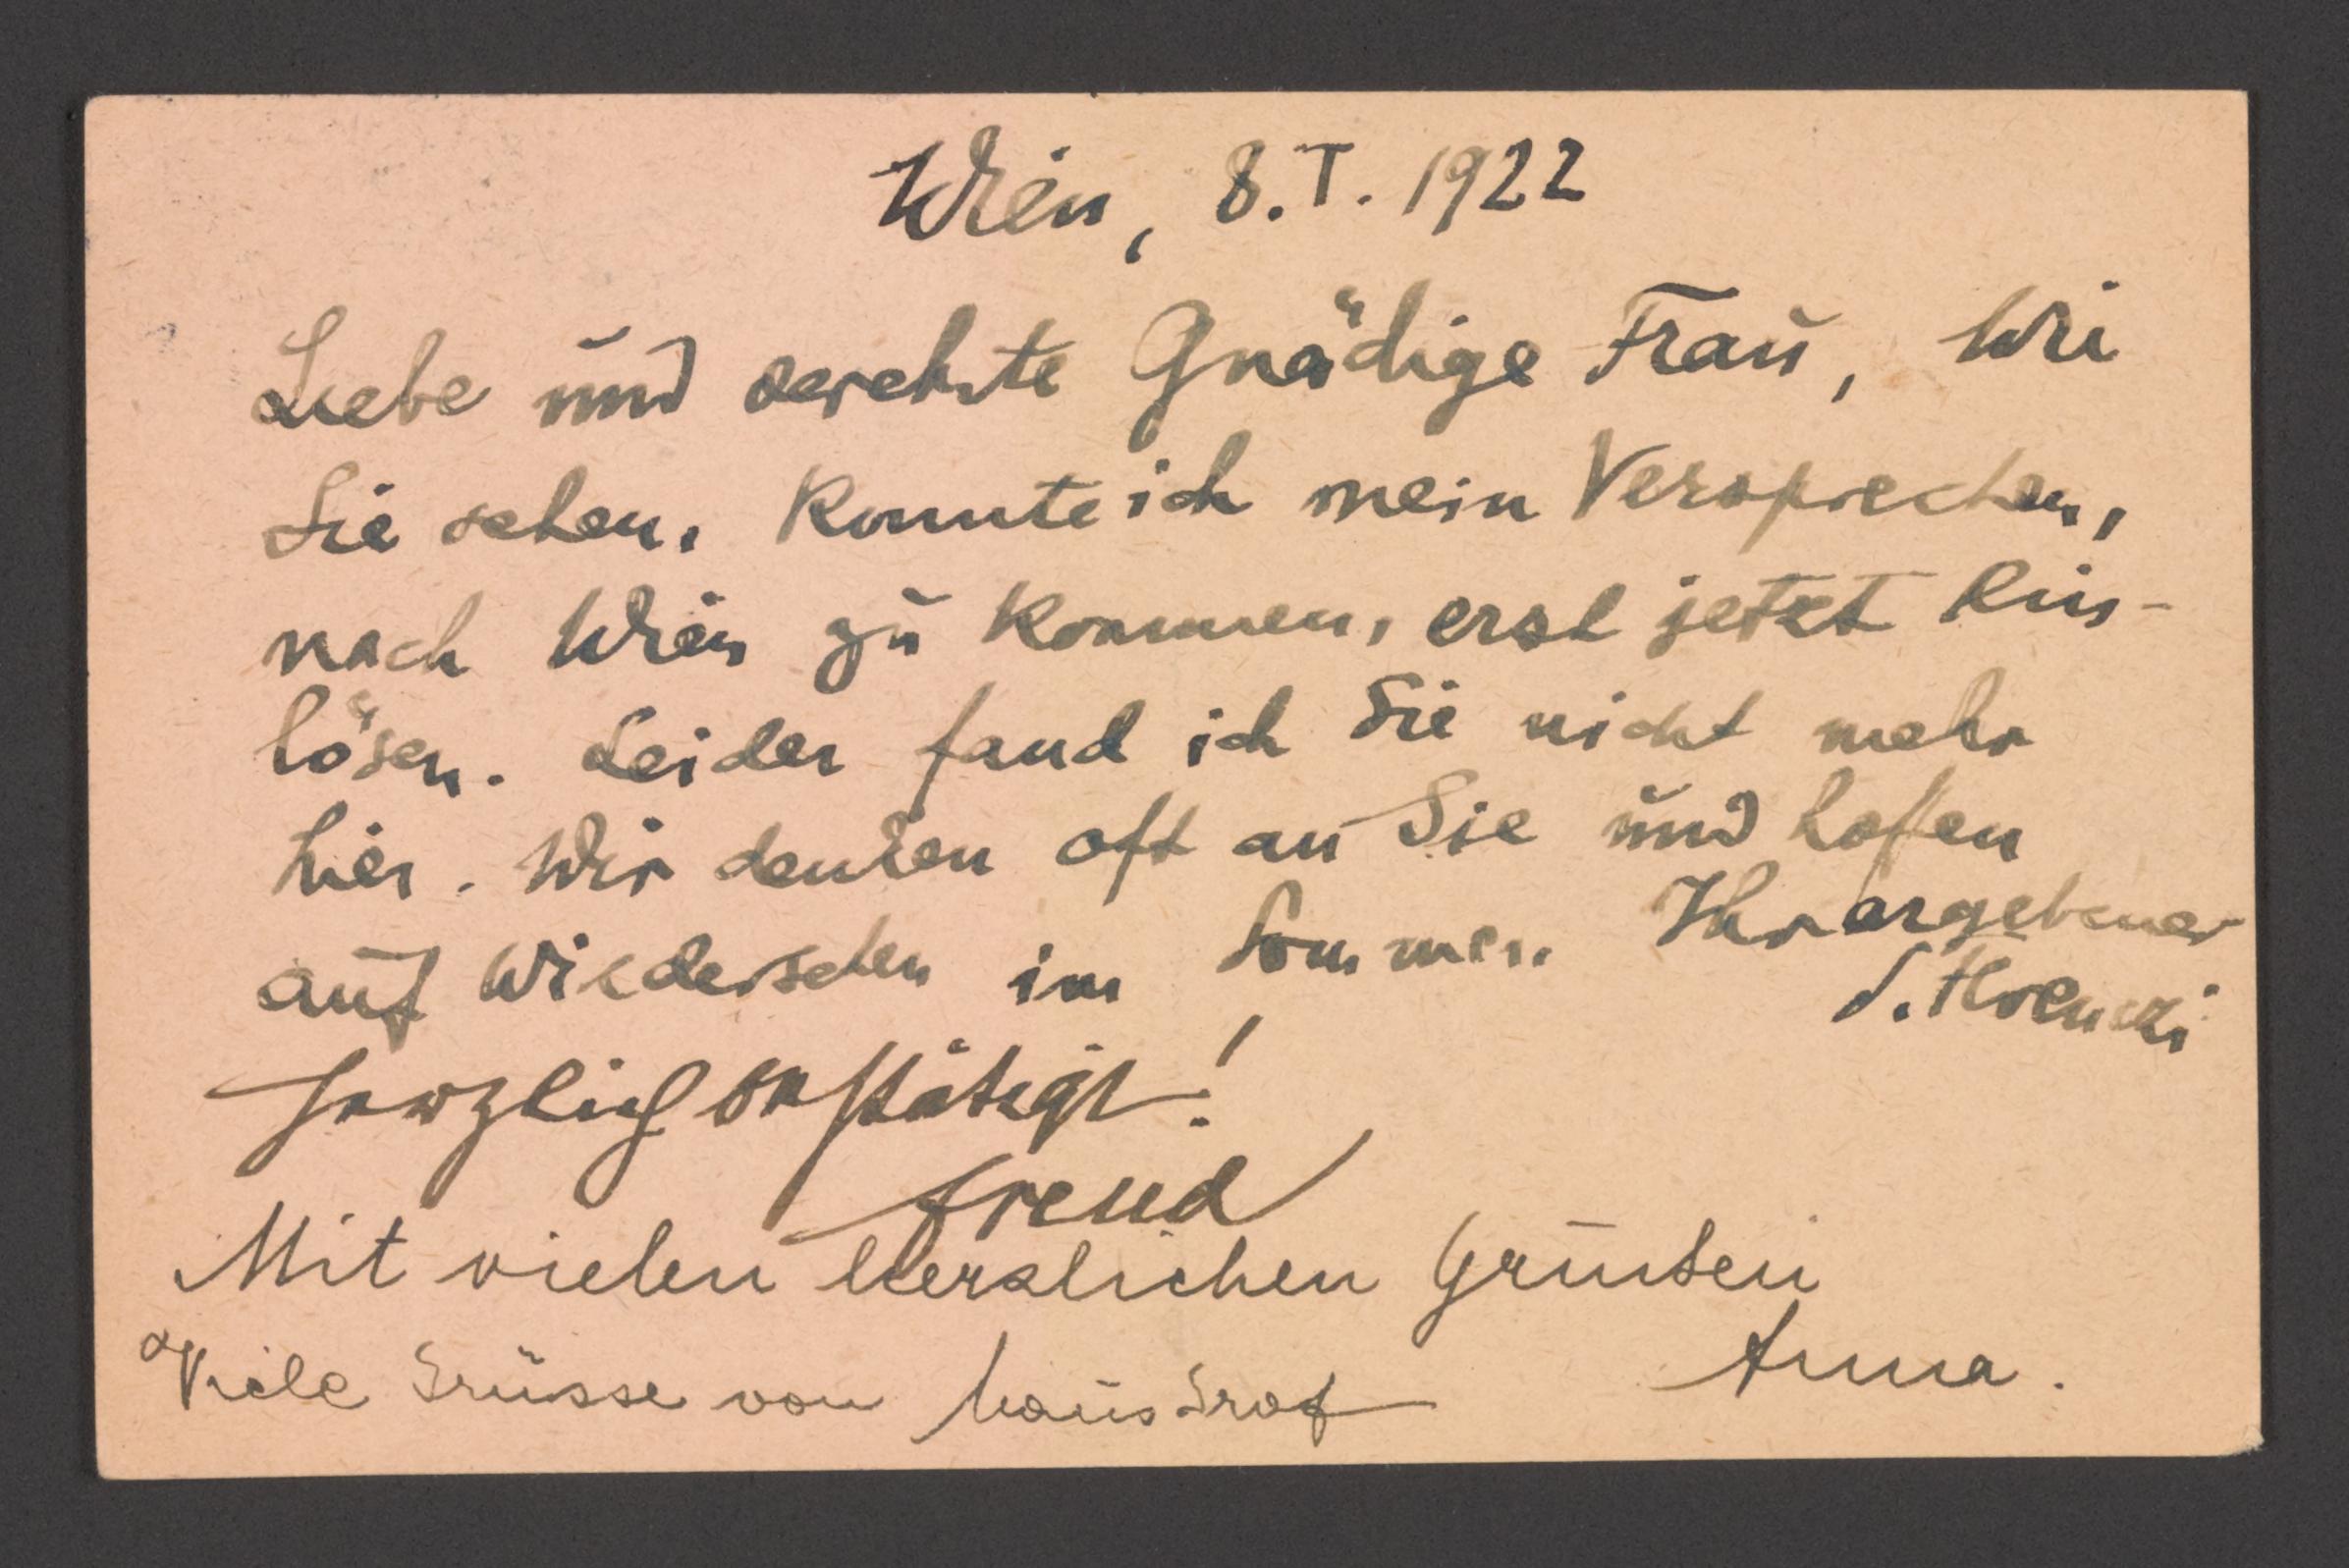 Wien, 8.I.1922
Liebe und verehrte Gnädige Frau, Wie
Sie sehen, konnte ich mein Versprechen,
nach Wien zu kommen, erst jetzt ein-
lösen. Leider fand ich Sie nicht mehr
hier. Wir denken oft an Sie und hoffen
auf Wiedersehen im Sommer. Ihr ergebener
S. Ferenczi
Herzlich bestätigt!
Freud
Mit vielen herzlichen Grüssen
Anna.
Viele Grüsse von